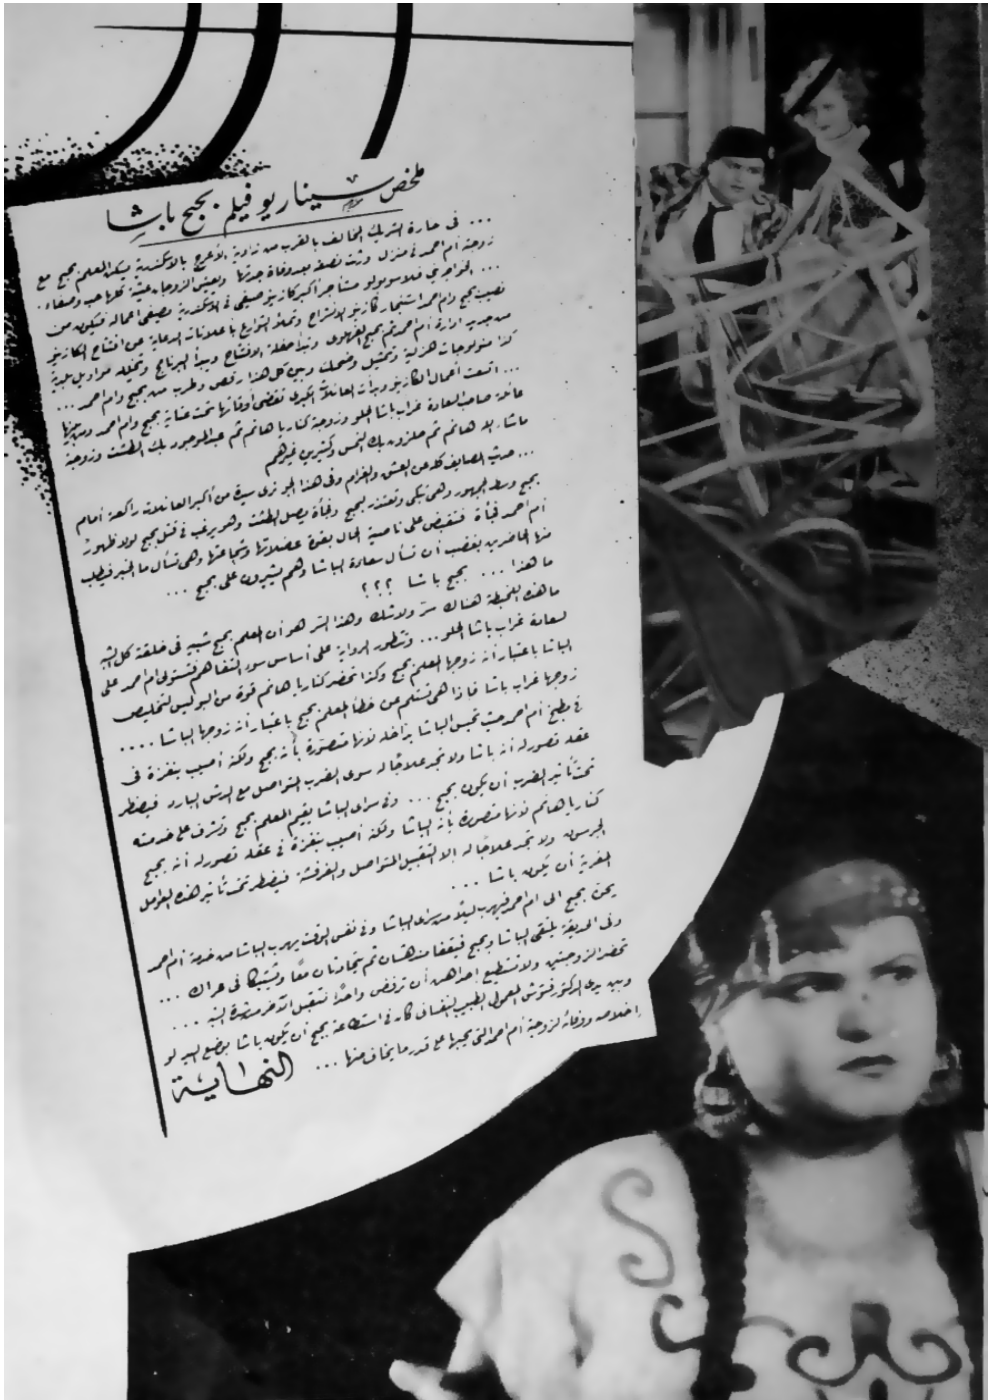 ملخص سيناريو فيلم بحبح باشا
... فى حارة الترك المخالف بالقرب من زاوية الأعرج بالاسكندرية يسكن المعلم بحبح مع
زوجته أم احمد فى منزل ورثت نصفه بعد وفاة جدتها ويعيش الزوجان عيشة كلها حب وصفاء .
... الخواجه مستأجر أكبر كازينو صيفى فى الاسكندرية يصفى اعماله فيكون من
نصيب بحبح وام احمد استئجار كازينو الانشراح وتملأ الشوارع باعلانات الدعاية عن افتتاح الكازينو
من جديد ادارة أم احمد ثم بحبح وتبدأ حفلة الافتتاح ويبدأ البرنامج وتتخلله مواويل بلدية
كذا منولوجات هزلية وتمثيل وضحك وبين كل هذا رقص وطرب من بحبح وام احمد ...
... اتسعت أعمال الكازينو وبدأت العائلات الكبرى تقضى أوقاتها تحت عناية بحبح وام احمد ومن بينها
عائلة صاحب السعادة غراب باشا الحلو وزوجته كناريا هانم ثم عبد الموجود بك الطشت وزوجته
ماشاء الله هانم ثم حلزون بك النمس وكثيرين غيرهم
... حديث المصايف كله عن العشق والغرام وفى هذا الجو نرى سيدة من أكبر العائلات راكعة أمام
بحبح وسط الجمهور وهى تبكى وتعتذر لبحبح وفجأة يصل الطشت وهو يرغب فى قتل بحبح لولا ظهور
أم احمد فجأة فتقبض على ناصية الحال بقوة عضلاتها وشجاعتها وهى تسأل ما الخبر فيطلب
منها الحاضرين بغضب أن تسأل سعادة الباشا وهم يشيرون على بحبح ...
ما هذا ... بحبح باشا ؟؟؟
ما هذه اللخبطة هناك سر ولا شك وهذا السر هو أن المعلم بحبح شبيه فى خلقته كل الشبه
لسعادة غراب باشا الحلو ... وتتطور الرواية على أساس سوء التفاهم فتستولى ام احمد على
الباشا باعتبار أنه زوجها المعلم بحبح وكذا تحضر كناريا هانم قوة من البوليس لتخليص
زوجها غراب باشا فاذا هى تستلم عن خطأ المعلم بحبح باعتبار أنه زوجها الباشا ....
فى مطبخ أم احمد حيث تحبس الباشا بداخله لأنها متصورة بأنه بحبح ولكنه أصيب بنغزة فى
عقله تصور له أنه باشا ولا تجد علاجًا له سوى الضرب المتواصل مع الدش البارد فيضطر
تحت تأثير الضرب أن يكون بحبح ... وفى سراى الباشا يقيم المعلم بحبح وتشرف على خدمته
كناريا هانم لأنها متصورة بأنه الباشا ولكنه أصيب بنغزة فى عقله تصور له أنه بحبح
الجرسون ولا تجد علاجًا له إلا التقبيل المتواصل والفرفشة فيضطر تحت تأثير هذه العوامل
المغرية أن يكون باشا ...
يحن بحبح الى ام احمد فيهرب ليلًا من سراى الباشا وفى نفس الوقت يهرب الباشا من خدمة أم احمد
وفى الحديقة يلتقى الباشا وبحبح فيقفا مندهشان ثم يتحادثان معًا ويشتبكا فى عراك ...
تحضر الزوجتين ولا تستطيع احداهن أن ترفض واحدًا لتقبل الآخر من شدة الشبه ...
وبين يدى الدكتور الطبيب النفسانى كان فى استطاعة بحبح أن يكون باشا بوضع اليد لو
إخلاصه ووفائه لزوجته أم احمد التى يحبها على قدر ما يخاف منها ...
النهاية